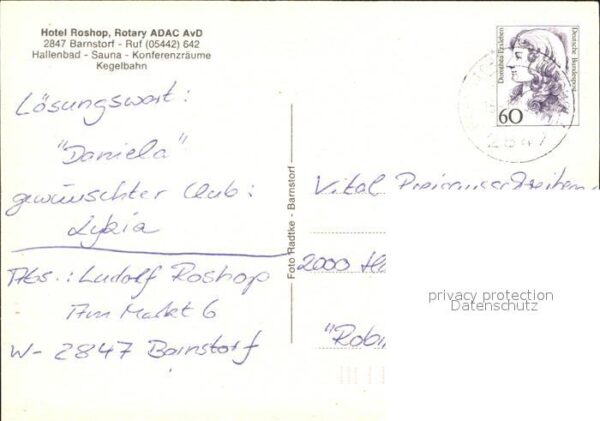 Hotel Roshop, Rotary ADAC AvD
2847 Barnstorf - Ruf (05442) 642
Hallenbad - Sauna - Konferenzräume
Kegelbahn
Lösungswort:
"Daniela"
gewünschter Club:
Lykia
Abs.: Ludolf Roshop
Am Markt 6
W- 2847 Barnstorf
Foto Radtke - Barnstorf
Dorothea Erxleben
Deutsche Bundespost
60
Vital
2000 H
"Robin
privacy protection
Datenschutz